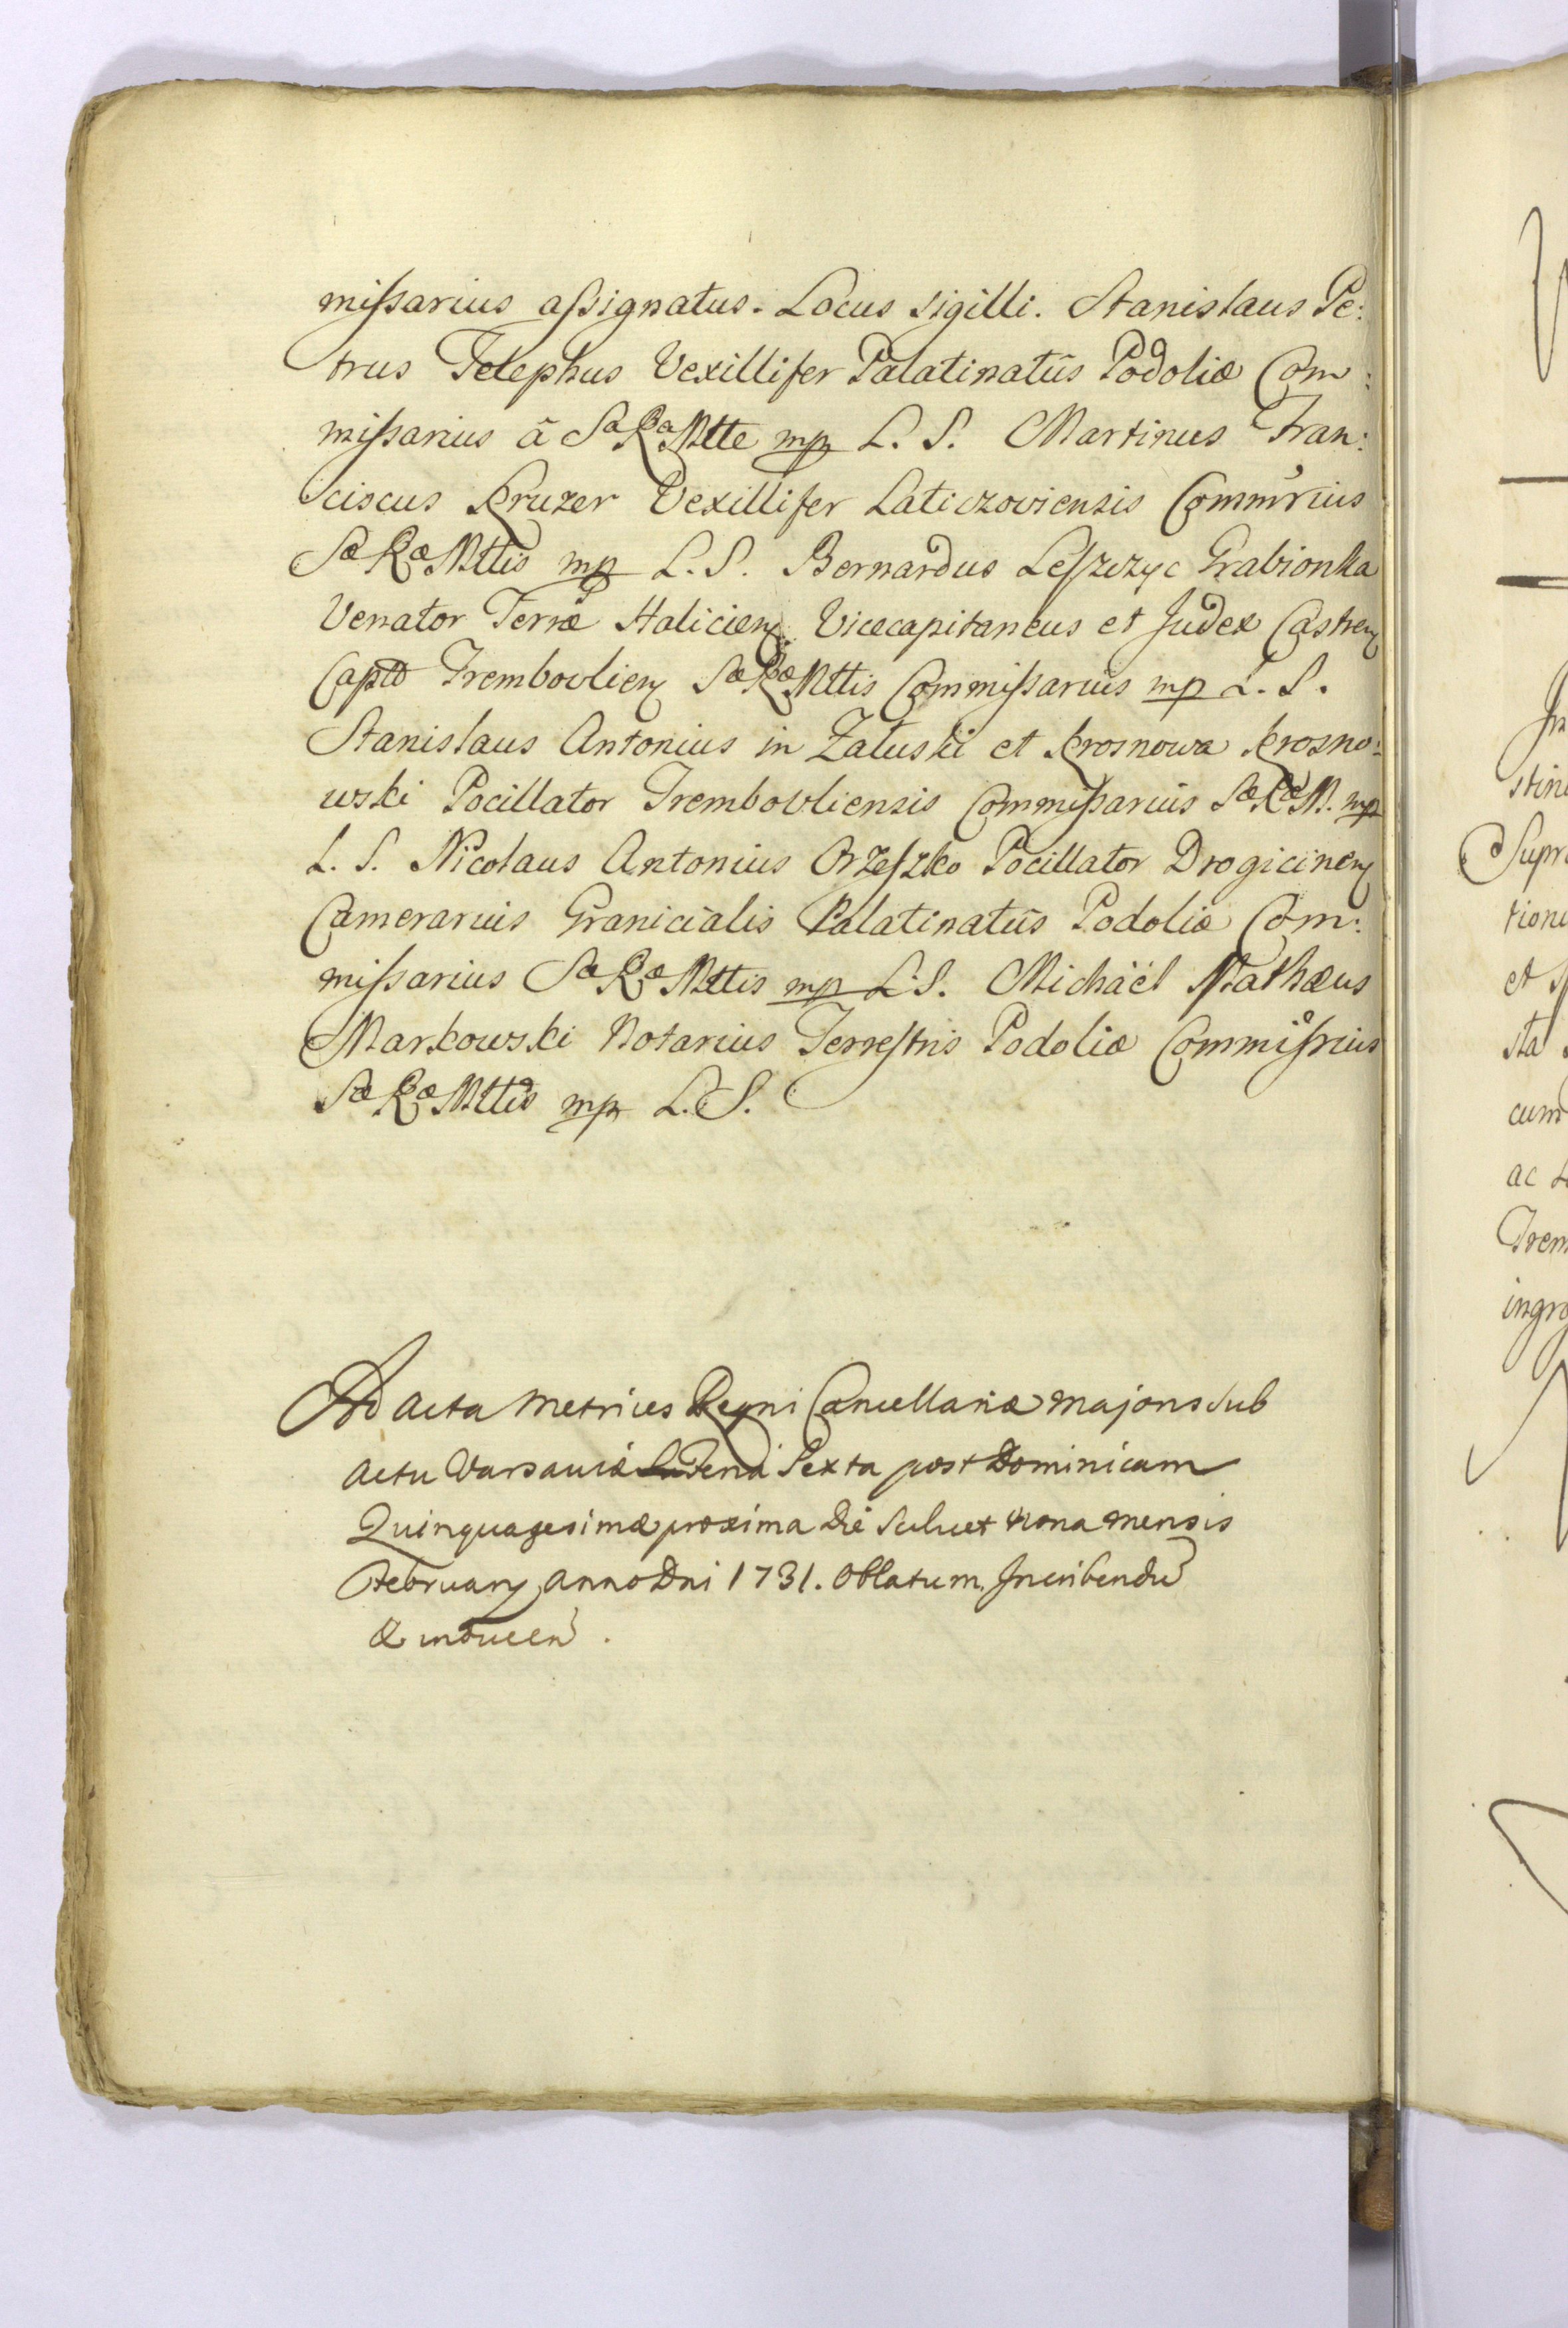 mißarius aßignatus. Locus sigilli. Stanislaus Pe:
trus Telephus Vexillifer Palatinatûs Podoliæ Com:
mißarius â Sa Ra Mtte mp L. S. Martinus Fran:
ciscus Kruzer Vexillifer Laticzoviensis Commrius
Sæ Ræ Mttis mp L. S. Bernardus Leſzczyc Grabionka
Venator Terræ Halicien Vicecapitaneus et Judex Castren
Captûs Trembovlien Sæ Ræ Mttis Commißarius mp L. S.
Stanislaus Antonius in Załuski et Krosnowa Krosno:
wski Pocillator Trembovliensis Commißarius Sæ Ræ M. mp
L. S. Nicolaus Antonius Orzeſzko Pocillator Drogicinen
Camerarius Granicialis Palatinatûs Podoliæ Com:
mißarius Sæ Ræ Mttis mp L. S. Michaël Mathæus
Markowski Notarius Terreſtris Podoliæ Commißrius
Sæ Ræ Mttis mp L. S.
Ad Acta Metrices Regni Cancellariæ Majoris sub
Actu Varsaviæ Feria Sexta post Dominicam
Quinquagesimæ proxima die scilicet nona mensis
February Anno Dni 1731. Oblatum. Inscribendu
& inducen.
Jn
stine
Supr
tione
et s
sta
cum
ac
Trem
ingro